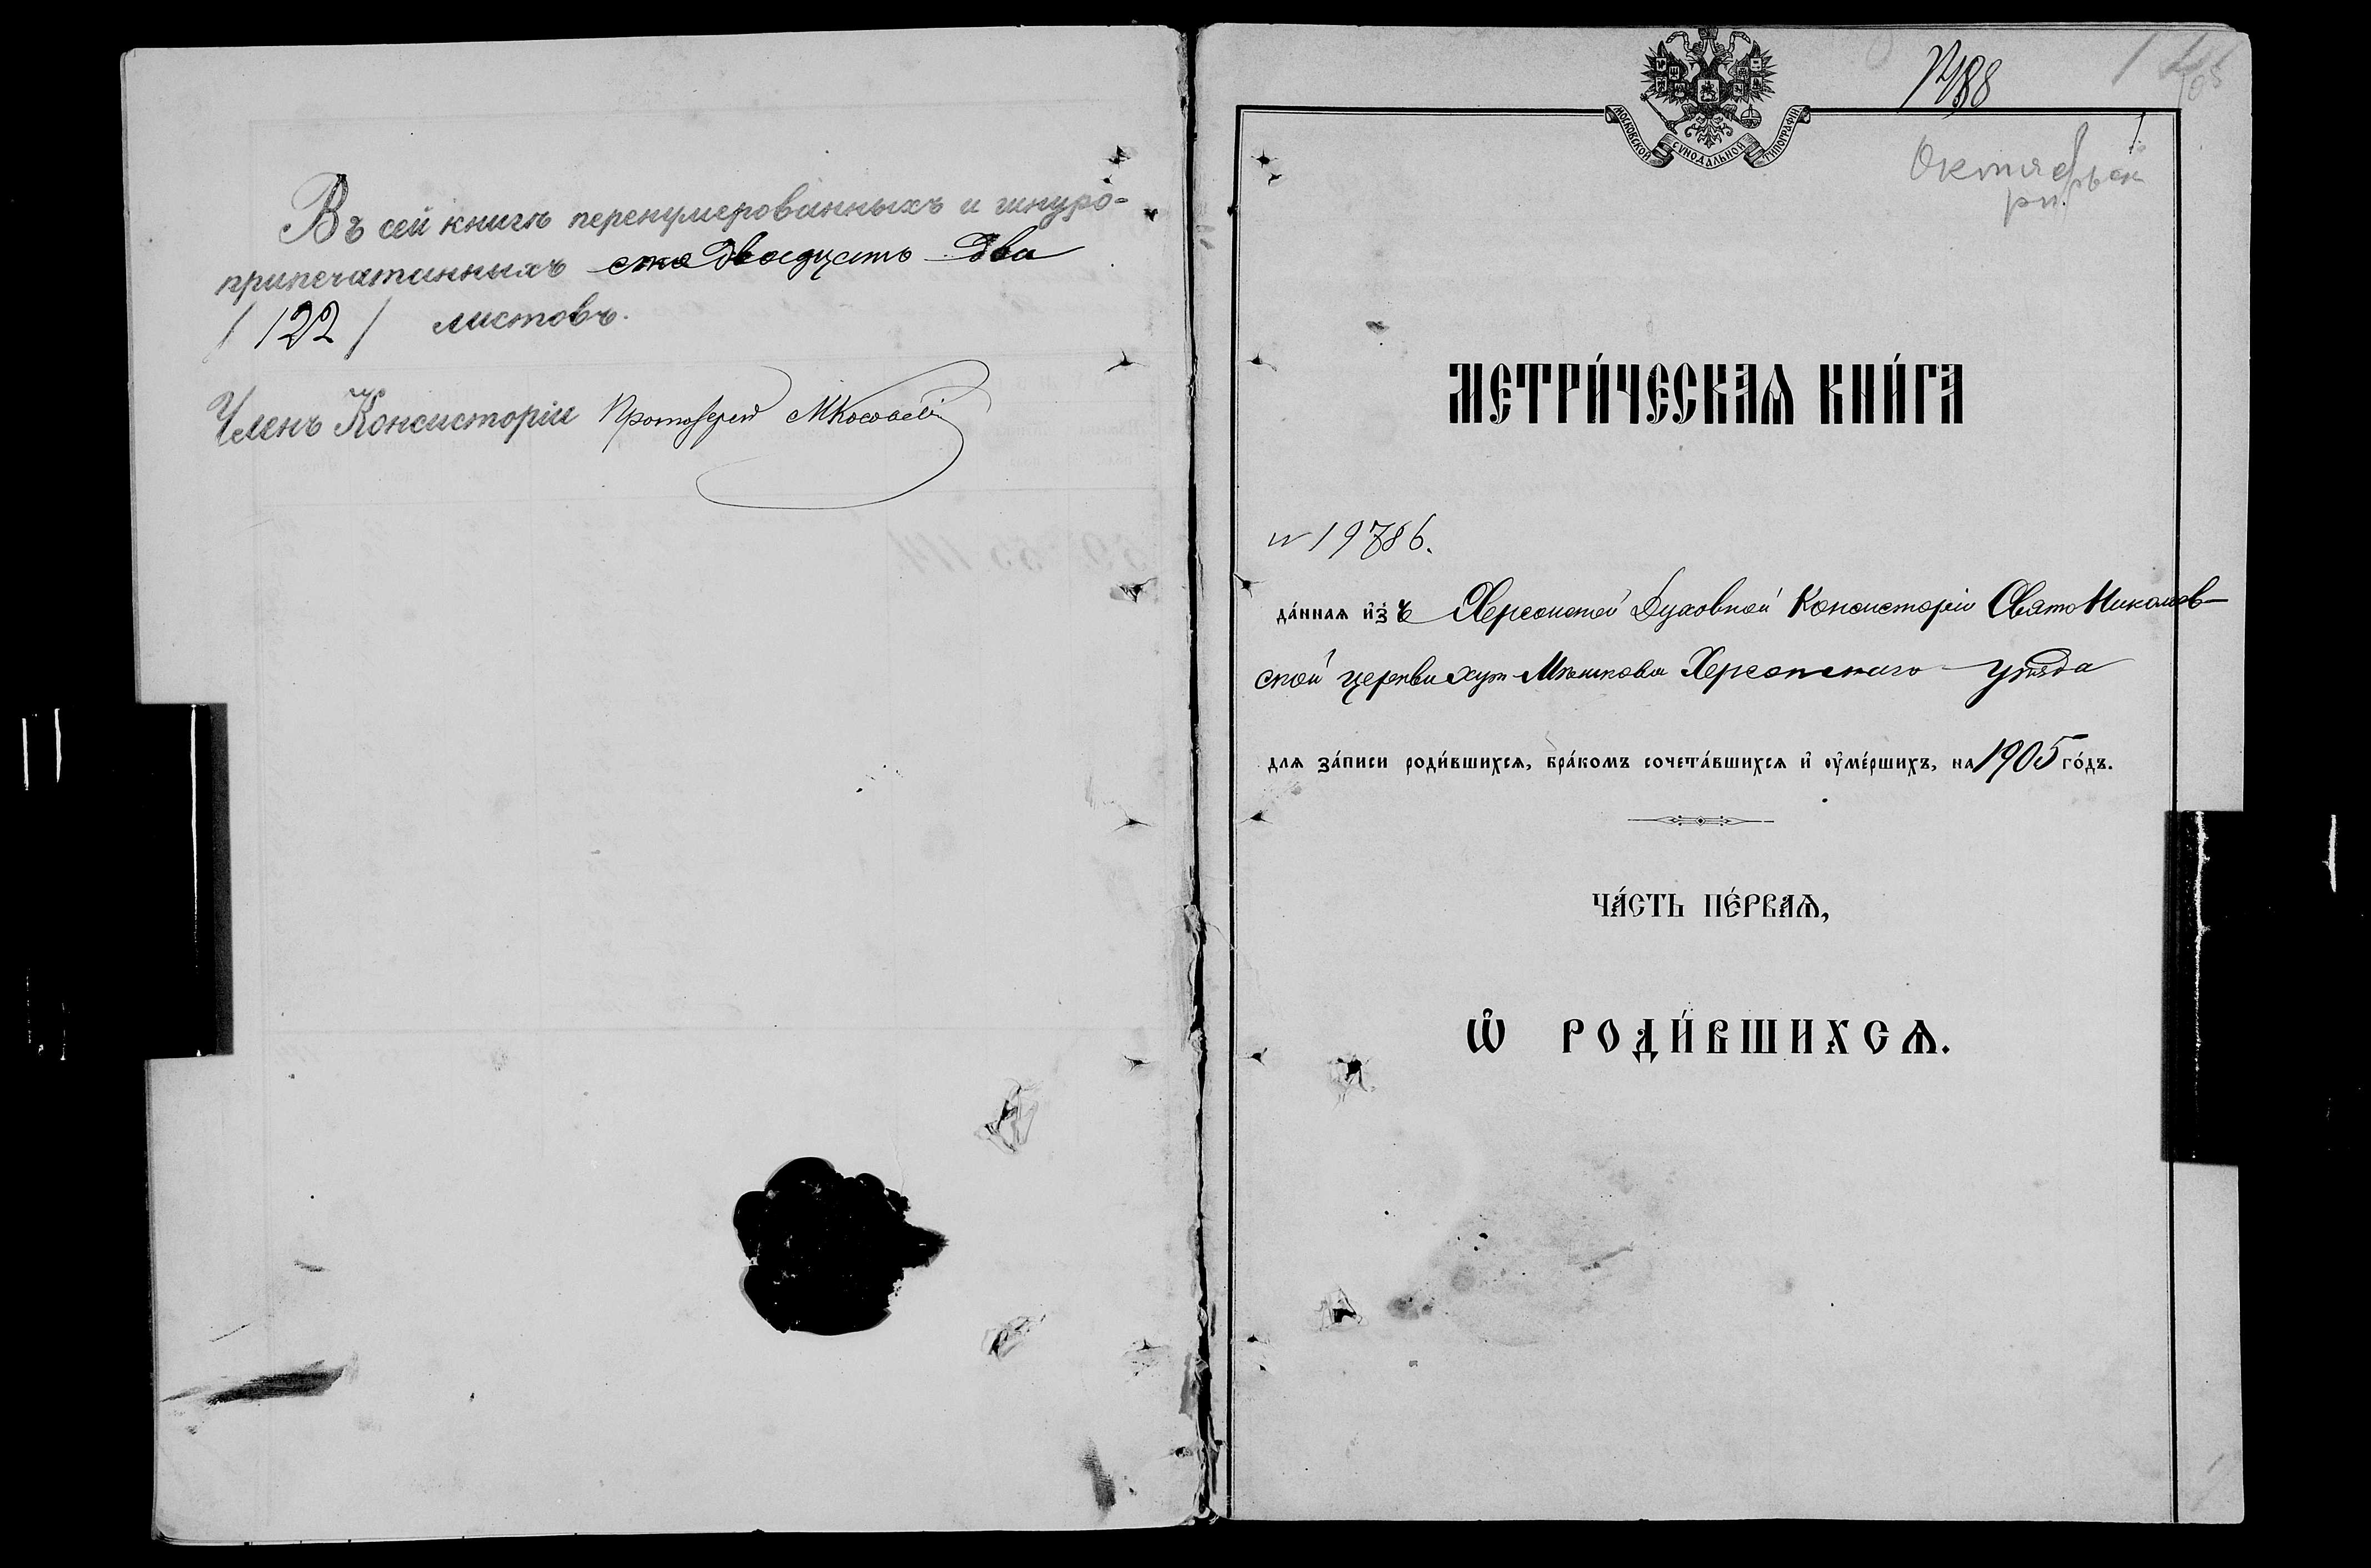 Въ сей книгѣ перенумерованныхъ и шнуро-
припечатанныхъ сто двадцать два
/ 122 / листовъ.
Членъ Консисторіи Протоіерей
МОСКОВСКОЙ СѴНОДАЛЬНОЙ ТИПОГРАФІИ
Октябрьск
рн.
МЕТРИ́ЧЕСКАѦ КНИ́ГА
№ 19786.
да́ннаѧ и҆зъ Херсонской Духовной Консисторіи Свято Николаев-
ской церкви хут Мѣшкова Херсонскаго уѣзда
для за́писи роди́вшихсѧ, бра́комъ сочета́вшихсѧ и҆ оу҆ме́ршихъ, на 1905 го́дъ.
ЧА́СТЬ ПЕ́РВАѦ,
Ѽ РОДИ́ВШИХСѦ.